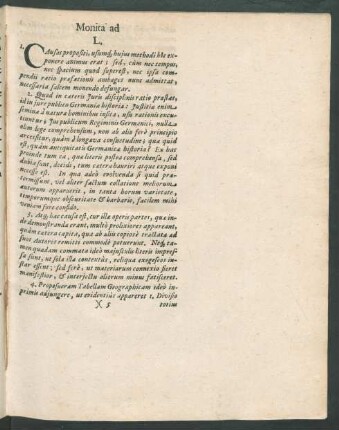 Monita ad
L.
1. CAusas propositi, usumq́; hujus methodi hîc ex-
ponere animus erat: sed, cùm nec tempus,
nec spacium quod superest, nec ipsa com-
pendii ratio præfationis ambages nunc admittat,
necessaria saltem monendo defungar.
2. Quod in cæteris Juris disciplinis ratio præstat,
id in jure publico Germaniæ historia: Justitia enim
semina à natura hominibus insita, usu rationis excu-
tiuntur; Jus publicum Regiminis Germanici, nulla
non lege comprehensum, non ab alio ferè principio
arcessitur, quàm à longæva consuetudine; quæ quid
est, quàm antiquitatis Germanicæ historia? Ex hac
proinde tum ea, quæ literis posita comprehensa, sed
dubia sunt, decidi, tum cætera hauriri atque exponi
necesse est. In qua adeò evolvenda si quid præ-
termissum, vel aliter factum collatione meliorum
autorum apparuerit, in tanta rerum varietate,
temporumque obscuritate & barbarie, facilem mihi
veniam fore confido.
3. Atq́; hac causa est, cur illa operis partes, quæ in-
de demonstranda erant, multò prolixiores appareant,
quàm cætera capita, quæ ab aliis copiosè tractata ad
suos autores remitti commodè potuerunt. Neq́; ta-
men quædam commata ideò majusculis literis impres-
sa sunt, ut sola illa contextûs, reliqua exegeseos in-
star essent; sed ferè, ut materiarum connexio fieret
manifestior, & interjectu aliorum minus fatisceret.
4. Proposueram Tabellam Geographicam ideò im-
primis adjungere, ut evidentiùs appareret 1. Divisio
X 5 totius